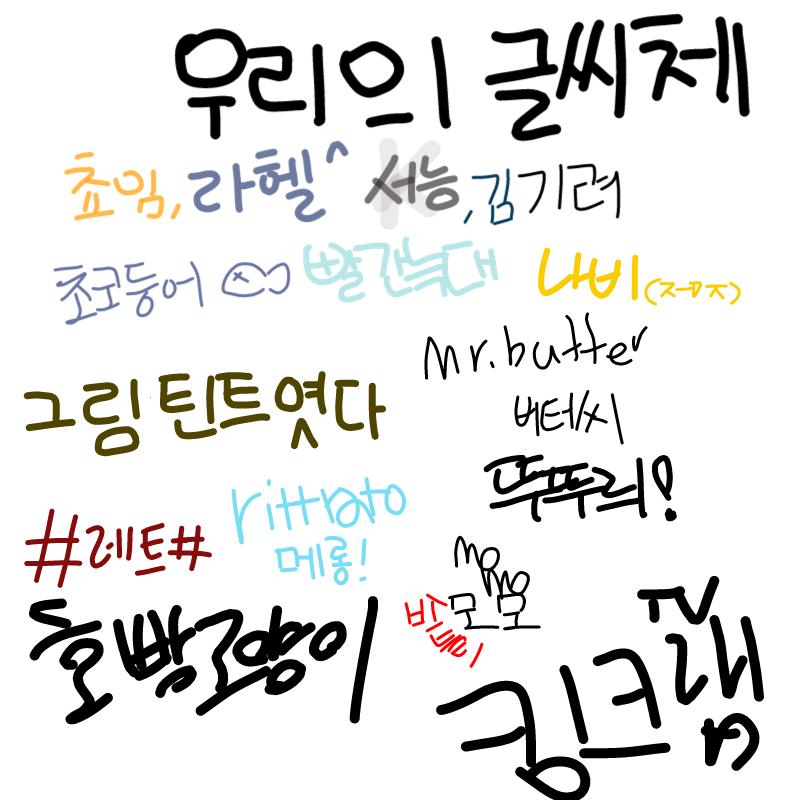 우리의 글씨체
쵸밈, 라헬^ 서능, 김기려
초코둥어 빨간늑대 나비(ㅈㅁㅈ)
mr.butter
버터씨
그림 틴트였다
뚜뚜리!
rittrato
메롱!
#레트#
momo
모모
호빵로얌이
TV
킹크랩